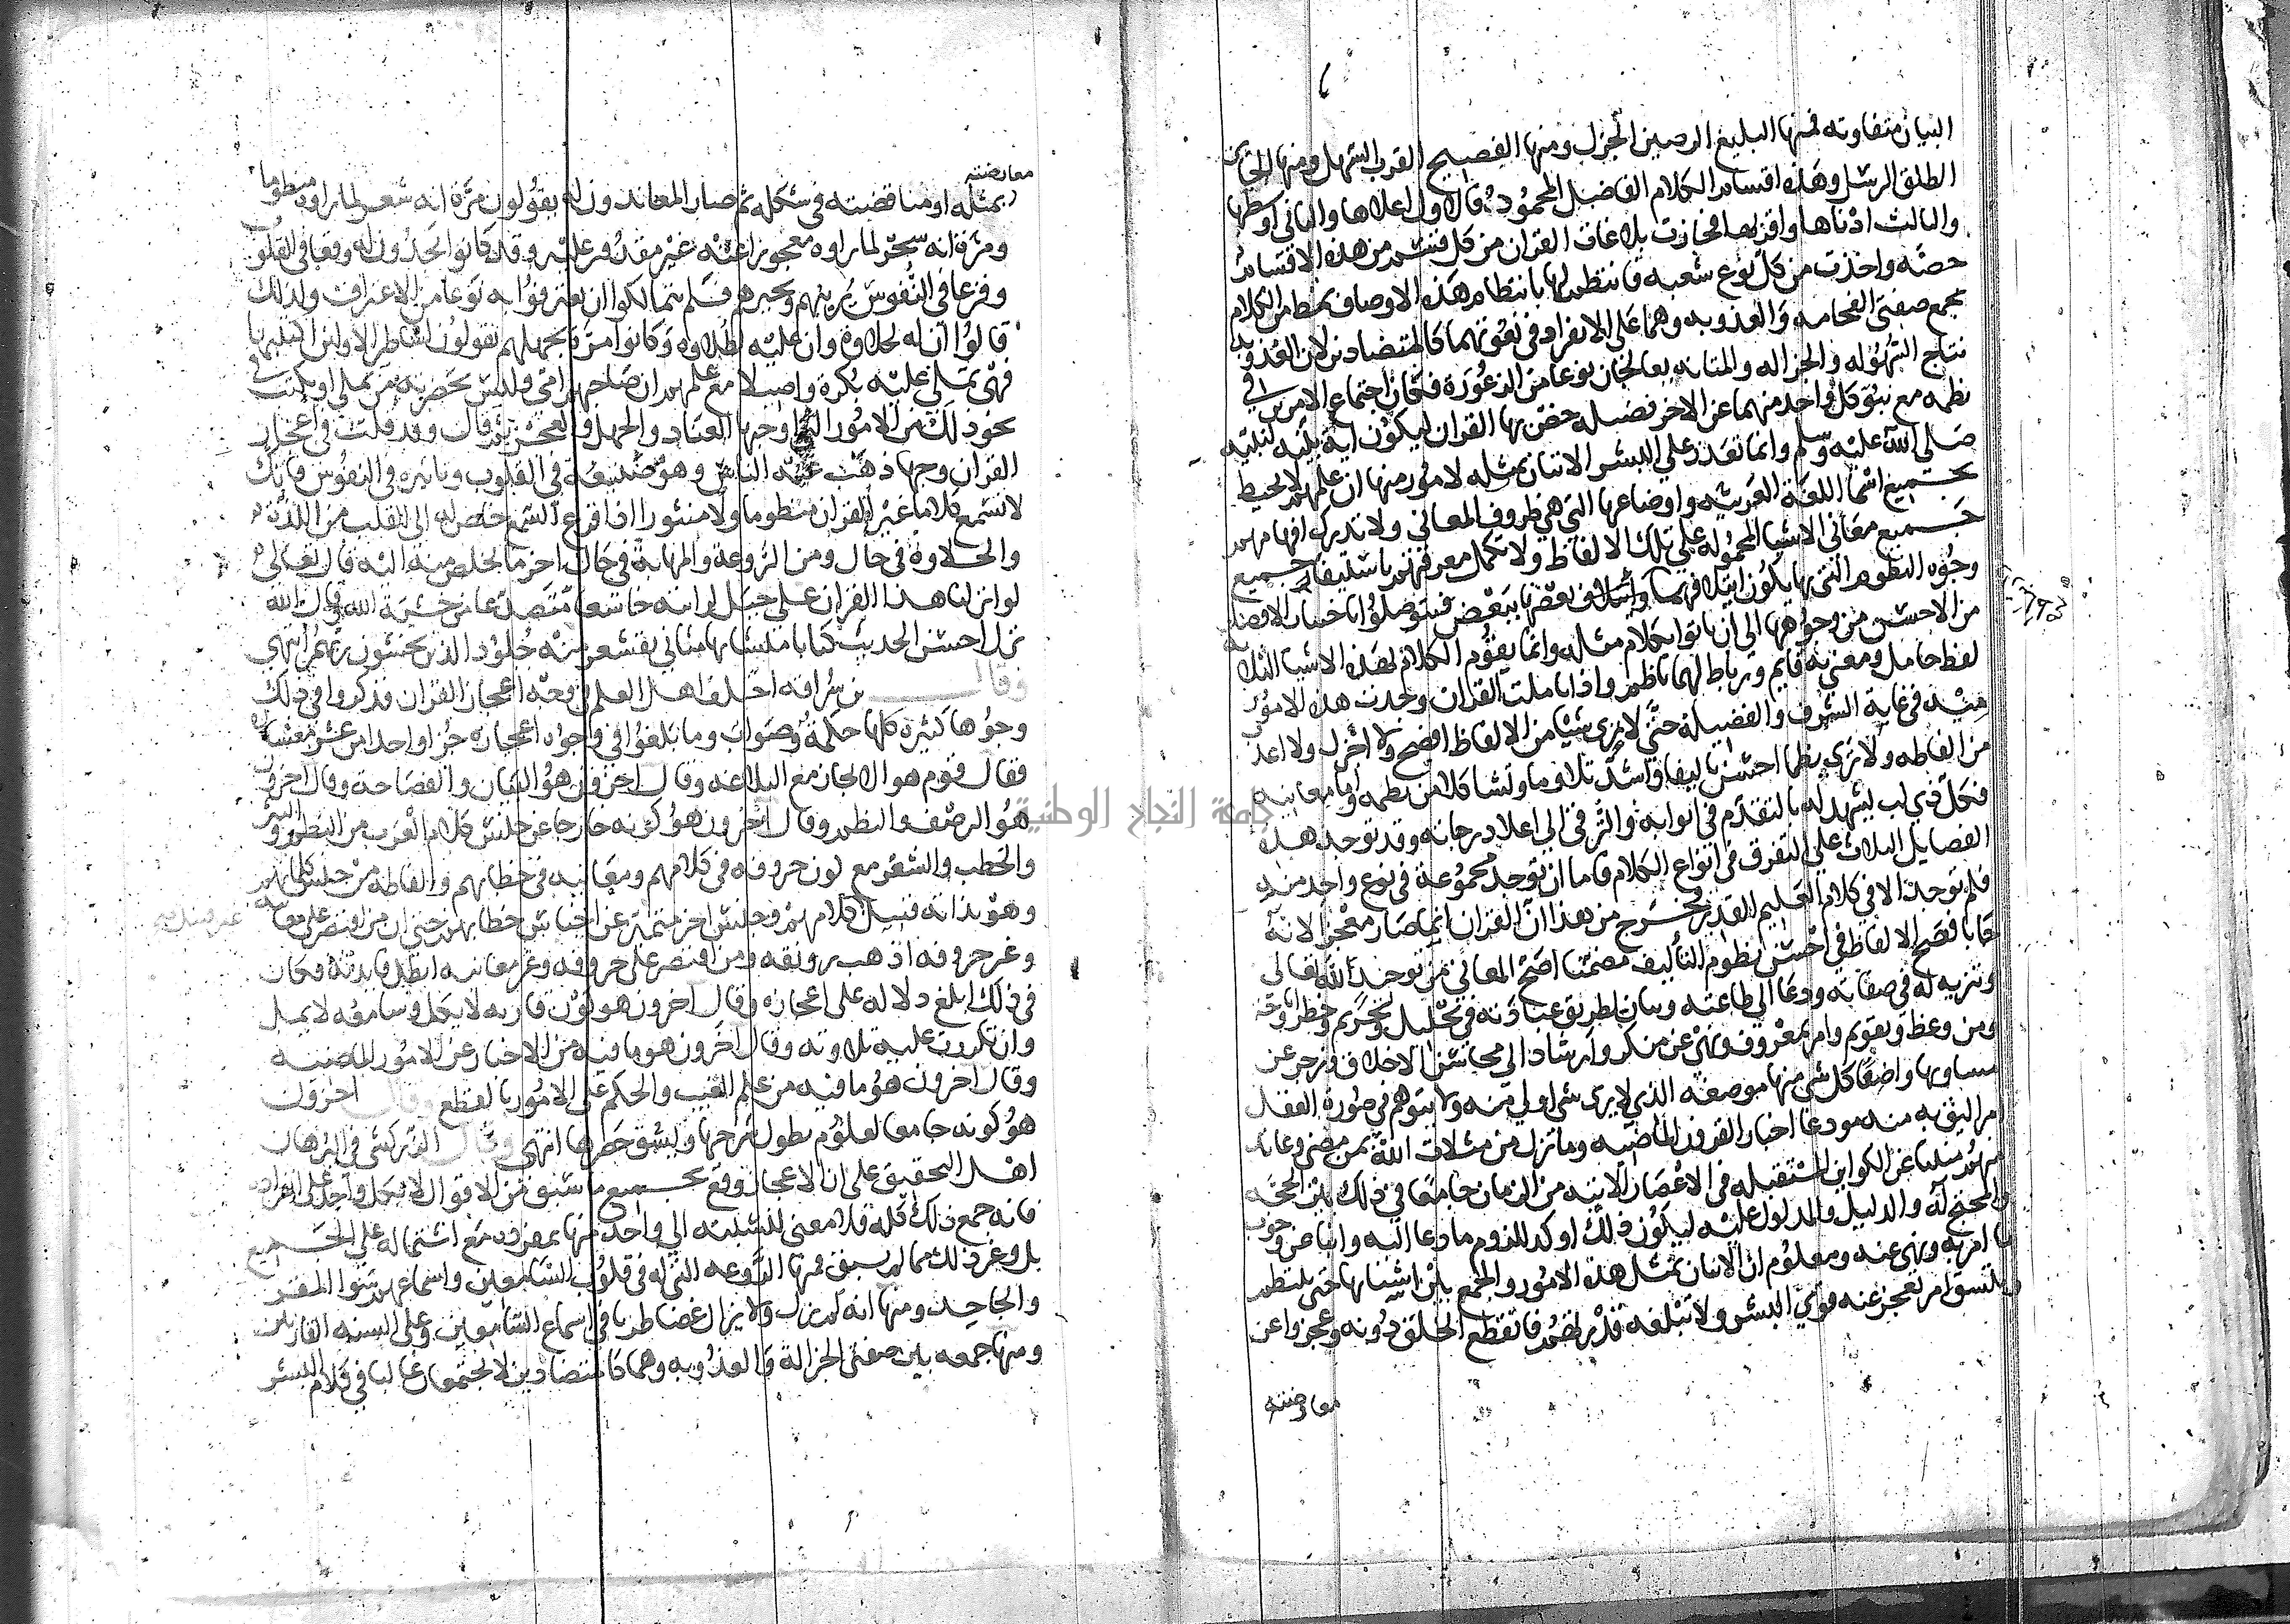 البيان متفاوته فمنها البليغ الرصين الجزل ومنها الفصيح القريب السهل ومنها الجايز
الطلق الرسل وهذه اقسام الكلام الفاضل المحمود فالاول اعلاها والثاني اوسطها
والثالث ادناها واقربها فحازت بلاغات القران من كل قسم من هذه الاقسام
حصه واخذت من كل نوع شعبه فانتظم لها بانتظام هذه الاوصاف نمط من الكلام
يجمع صفتي الفخامه والعذوبه وهما على الانفراد في نعوتهما كالمتضادين لان العذوبه
نتاج السهوله والجزاله والمتانه يعالجان نوعا من الزعورة فكان اجتماع الامرين في
نظمه مع نبو كل واحد منهما عن الاخر فضيله خص بها القران ليكون اية بينه لنبيه
صلى الله عليه وسلم وانما تعذر على البشر الاتيان بمثله لامور منها ان علمهم لا يحيط
بجميع اسما اللغة العربيه واوضاعها التي هي ظروف المعاني ولا تدرك افهامهم
جميع معاني الاشيا المحموله على تلك الالفاظ ولا تكمل معرفتهم باستيفا جميع
وجوه النظوم التي بها يكون ايتلافها وارتباط بعضها ببعض فيتوصلوا باختيار الافضل
من الاحسن من وجوهها الى ان ياتوا بكلام مثله وانما يقوم الكلام بهذه الاشيا الثلاثه
لفظ حامل ومعنى به قايم ورباط لهما ناظم واذا تاملت القران وجدت هذه الامور
منه في غاية الشرف والفضيلة حتى لا ترى شيا من الالفاظ افصح ولا اجزل ولا اعذب
من الفاظه ولا ترى نظما احسن تاليفا واشد تلاوما وتشاكلا من نظمه واما معانيه
فكل ذي لب يشهد له بالتقدم في ابوابه والترقي الى اعلا درجاته وقد توجد هذه
الفضايل الثلاث على التفرق في انواع الكلام فاما ان توجد مجموعة في نوع واحد منه
فلم توجد الا في كلام العليم القدير فخرج من هذا ان القران انما صار معجزا لانه
جا بافصح الالفاظ في احسن نظوم التأليف مضمنا اصح المعاني من توحيد الله تعالى
وتنزيه له في صفاته ودعا الى طاعته وبيان لطريق عبادته في تحليل وتحريم وحظر واباحة
ومن وعظ وتقويم وامر بمعروف ونهي عن منكر وارشاد الى محاسن الاخلاق وزجر عن
مساويها واضعا كل شي منها موضعه الذي لا يرى شي اولى منه ولا يتوهم في صورة العقل
امر اليق به منه مودعا اخبار القرون الماضيه وما نزل من مثلات الله بمن مضى وعاند
منهم منبيا عن الكواين المستقبله في الاعصار الاتيه من الزمان جامعا في ذلك بين الحجه
والمحتج له والدليل والمدلول عليه ليكون ذلك اوكد للزوم ما دعا اليه وانبا عن وجوب
ما امر به ونهي عنه ومعلوم ان الاتيان بمثل هذه الامور والجمع بين اشتاتها حتى تنتظم
وتتسق امر تعجز عنه قوى البشر ولا تبلغه قدرتهم فانقطع الخلق دونه وعجزوا عن
معارضته
معارضته
بمثله او مناقضته في شكله ثم صار المعاندون له يقولون مرة انه شعر لما راوه منظوما
ومرة انه سحر لما راوه معجوزا عنه غير مقدور عليه وقد كانوا يجدون له وقعا في القلوب
وفزعا في النفوس يريبهم ويحيرهم فلم يتمالكوا ان يعترفوا به نوعا من الاعتراف ولذلك
قالوا ان له لحلاوة وان عليه لطلاوه وكانوا مرة بجهلهم يقولون اساطير الاولين اكتتبها
فهي تملى عليه بكرة واصيلا مع علمهم ان صاحبهم امي وليس بحضرته من يملي او يكتب في
نحو ذلك من الامور التي اوجبها العناد والجهل والعجز ثم قال وقد قلت في اعجاز
القران وجها ذهب عنه الناس وهو صنيعه في القلوب وتاثيره في النفوس فانك
لا تسمع كلاما غير القران منظوما ولا منثورا اذا قرع السمع خلص له الى القلب من اللذة
والحلاوة في حال ومن الروعة والمهابة في حال اخر ما يخلص منه اليه قال تعالى
لو انزلنا هذا القران على جبل لرايته خاشعا متصدعا من خشية الله وقال الله
نزل احسن الحديث كتابا متشابها مثاني تقشعر منه جلود الذين يخشون ربهم انتهى
وقال بن سراقه اختلف اهل العلم في وجه اعجاز القران فذكروا في ذلك
وجوها كثيرة كلها حكمة وصواب وما بلغوا في وجوه اعجازه جزا واحدا من عشر معشاره
فقال قوم هو الايجاز مع البلاغه وقال اخرون هو البيان والفصاحة وقال اخرون
هو الرصف والنظم وقال اخرون هو كونه خارجا عن جنس كلام العرب من النظم والنثر
والخطب والشعر مع كون حروفه في كلامهم ومعانيه في خطابهم والفاظه من جنس كلماتهم
وهو بذاته قبيل غير كلامهم وجنس اخر متميز عن اجناس خطابهم حتى ان من اقتصر على معانيه
وغير حروفه اذهب رونقه ومن اقتصر على حروفه وغير معانيه ابطل فايدته فكان
في ذلك ابلغ دلاله على اعجازه وقال اخرون هو كون قاريه لا يكل وسامعه لا يمل
وان تكررت عليه تلاوته وقال اخرون هو ما فيه من الاخبار عن الامور الماضيه
وقال اخرون هو ما فيه من علم الغيب والحكم على الامور بالقطع وقال اخرون
هو كونه جامعا لعلوم يطول شرحها ويشق حصرها انتهى وقال الزركشي في البرهان
اهل التحقيق على ان الاعجاز وقع بجميع ما سبق من الاقوال لا بكل واحد على انفراده
فانه جمع ذلك كله فلا معنى لنسبته الى واحد منها بمفرده مع اشتماله على الجميع
بل وغير ذلك مما لم يسبق فمنها الروعه التي له في قلوب السامعين واسماعهم سوا المقر
والجاحد ومنها انه لم يزل ولا يزال غضا طريا في اسماع السامعين وعلى السنه القارئين
ومنها جمعه بين صفتي الجزالة والعذوبه وهما كالمتضادين لا يجتمعان غالبا في كلام البشر
جامعة النجاح الوطنية